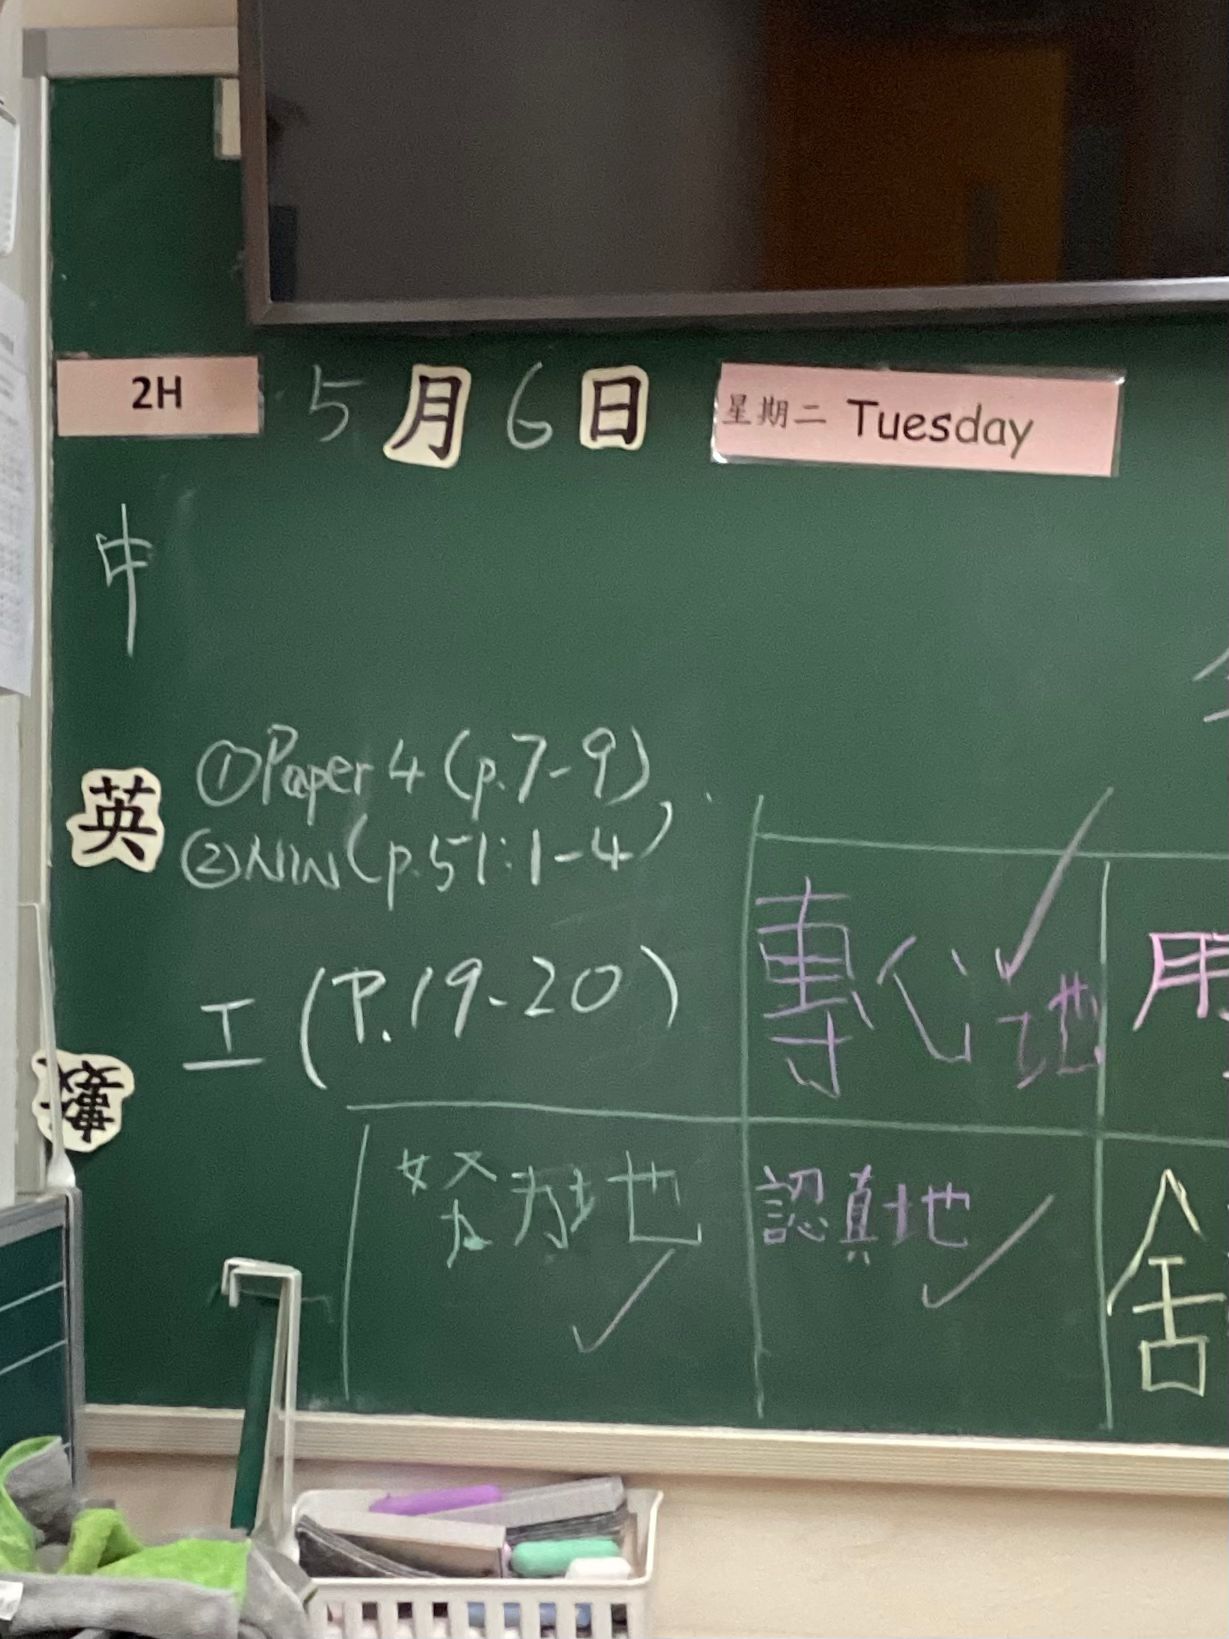 2H 5月6日 星期二 Tuesday
中
英 ①Paper 4 (p.7-9),
②NIN(p.51:1-4)
數 工 (P.19-20)
專心地 用
努力地 認真地 舍